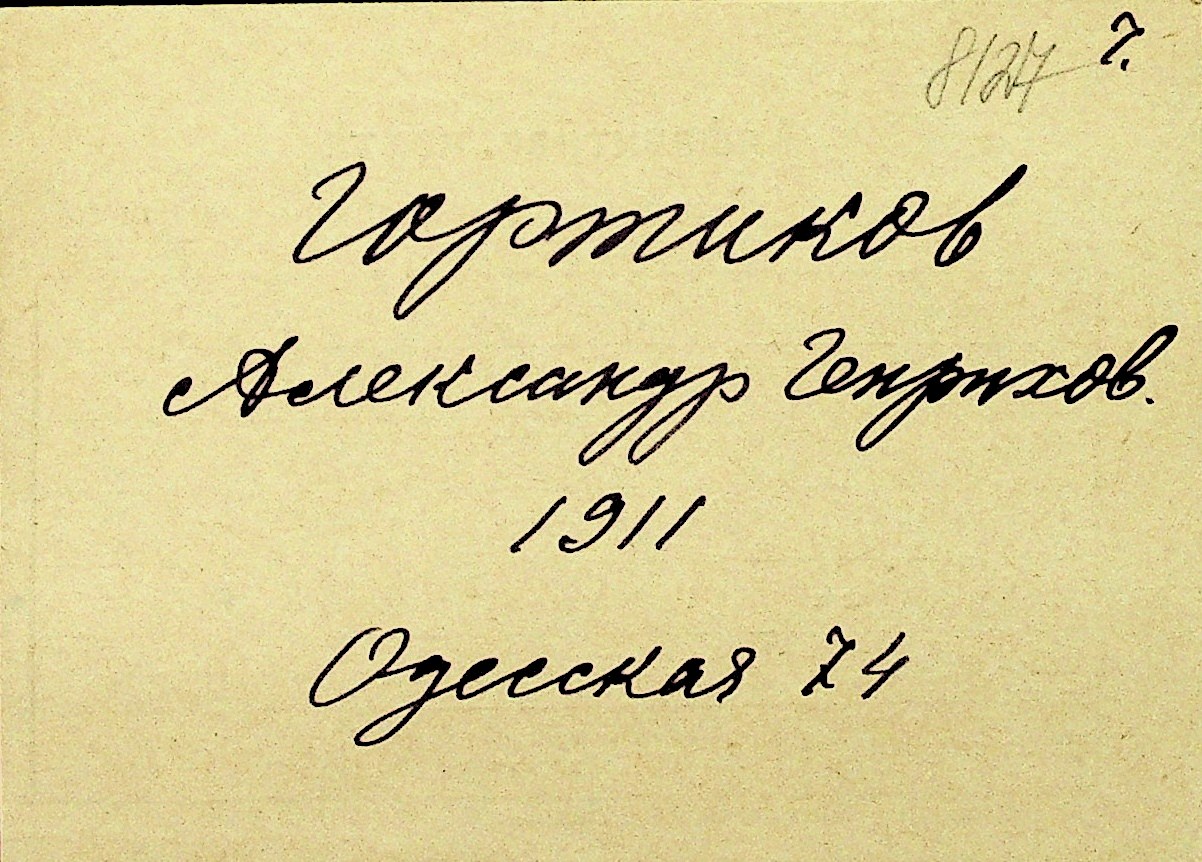 8127 7.
Гортиков
Александр Генрихов.
1911
Одесская 74